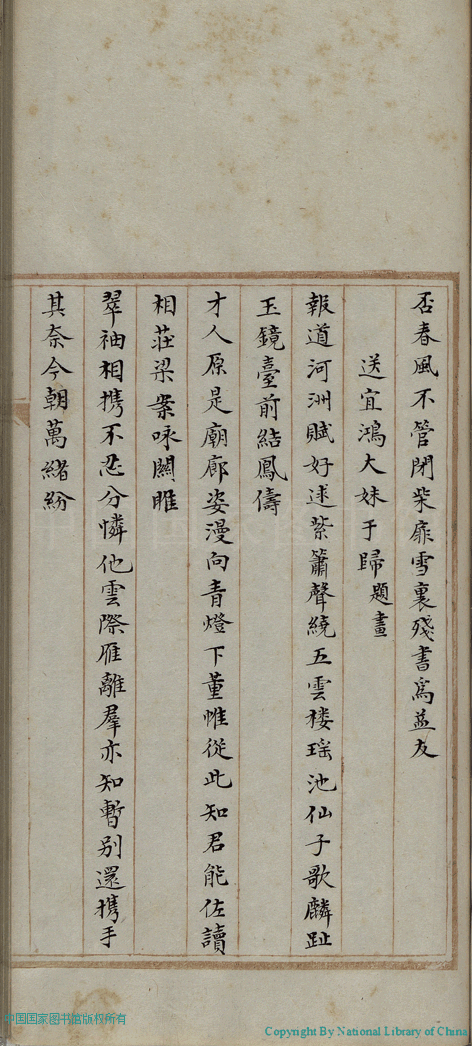 否春風不管閉柴扉雪裏殘書爲益友
送宜鴻大妹于歸題畫
報道河洲賦好逑紫簫聲繞五雲樓瑶池仙子歌麟趾
玉鏡臺前結鳳儔
才人原是廟廊姿漫向青燈下董帷從此知君能佐讀
相莊梁案咏關雎
翠袖相携不忍分憐他雲際雁離羣亦知暫别還携手
其奈今朝萬緒紛
中国国家图书馆版权所有
Copyright By National Library of China